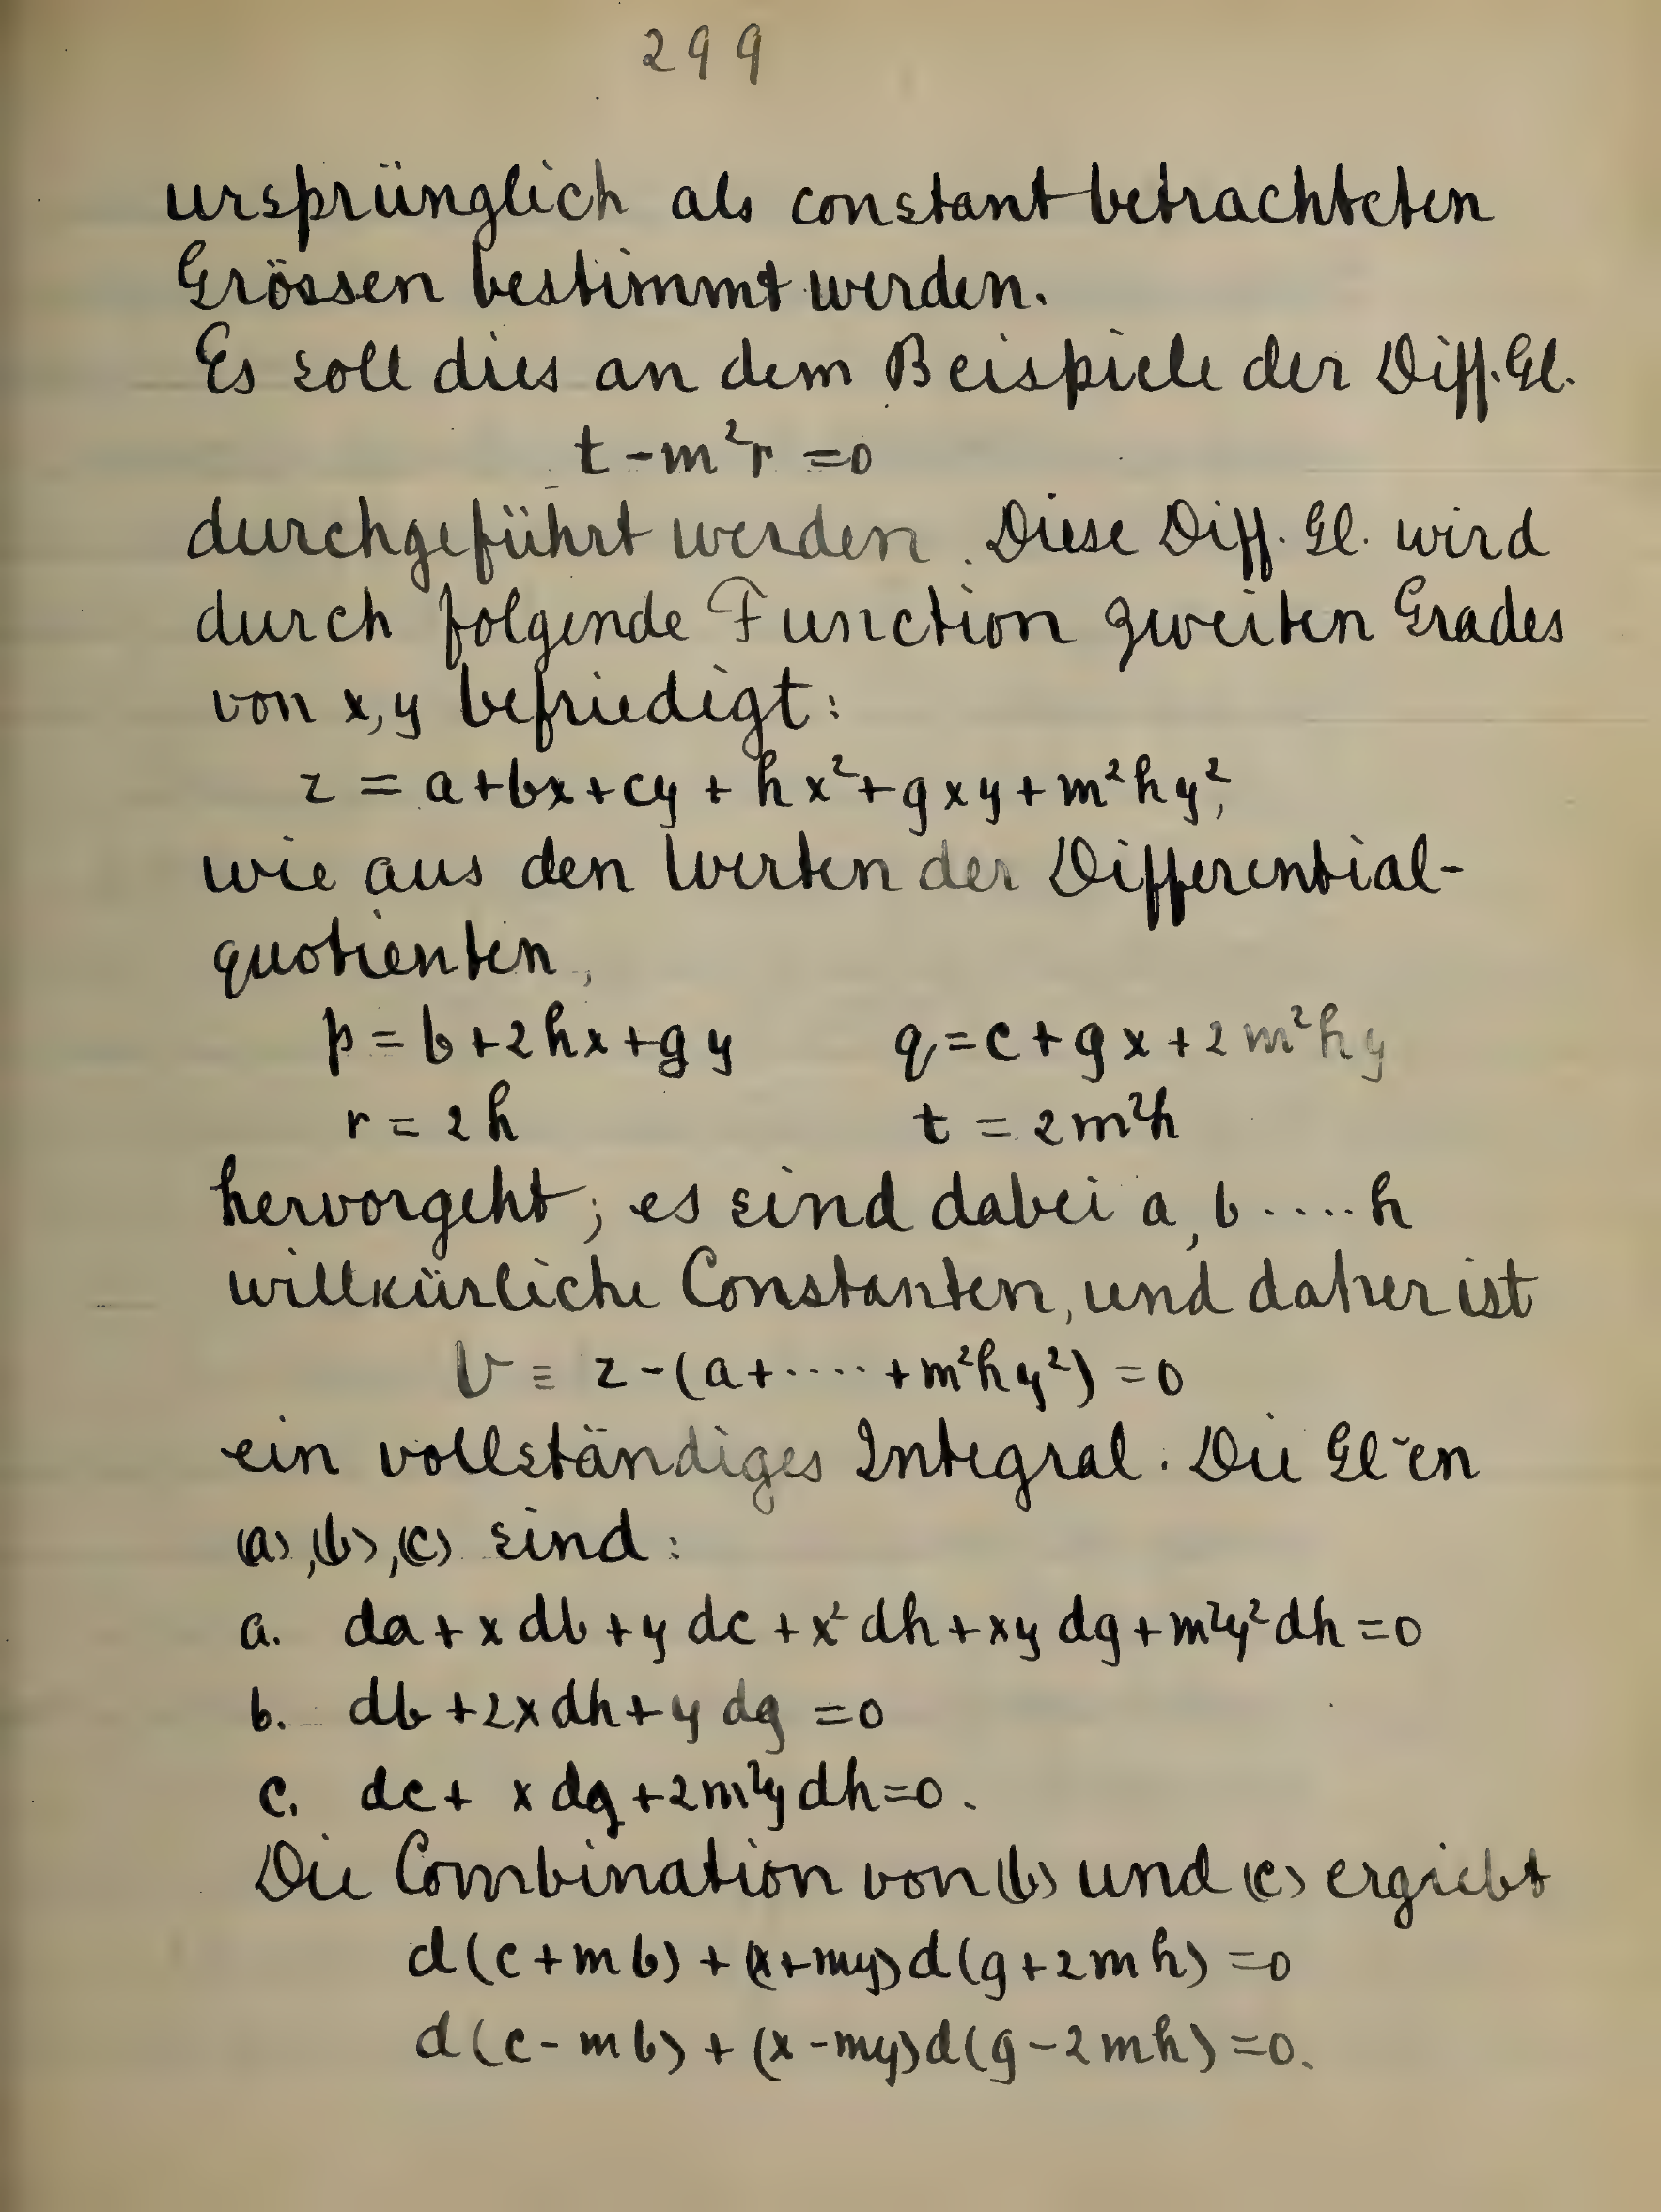 299
ursprünglich als constant betrachteten
Grössen bestimmt werden.
Es soll dies an dem Beispiele der Diff. Gl.
t - m²r = 0
durchgeführt werden. Diese Diff. Gl. wird
durch folgende Function zweiten Grades
von x, y befriedigt:
z = a + bx + cy + hx² + gxy + m²hy²,
wie aus den Werten der Differential-
quotienten,
p = b + 2hx + gy q = c + gx + 2m²hy
r = 2h t = 2m²h
hervorgeht; es sind dabei a, b .... h
willkürliche Constanten, und daher ist
V ≡ z - (a + ..... + m²hy²) = 0
ein vollständiges Integral. Die Gl~en
(a), (b), (c) sind:
a. da + x db + y dc + x² dh + xy dg + m²y² dh = 0
b. db + 2x dh + y dg = 0
c. dc + x dg + 2m²y dh = 0.
Die Combination von (b) und (c) ergiebt
d(c + mb) + (x + my) d(g + 2mh) = 0
d(c - mb) + (x - my) d(g - 2mh) = 0.